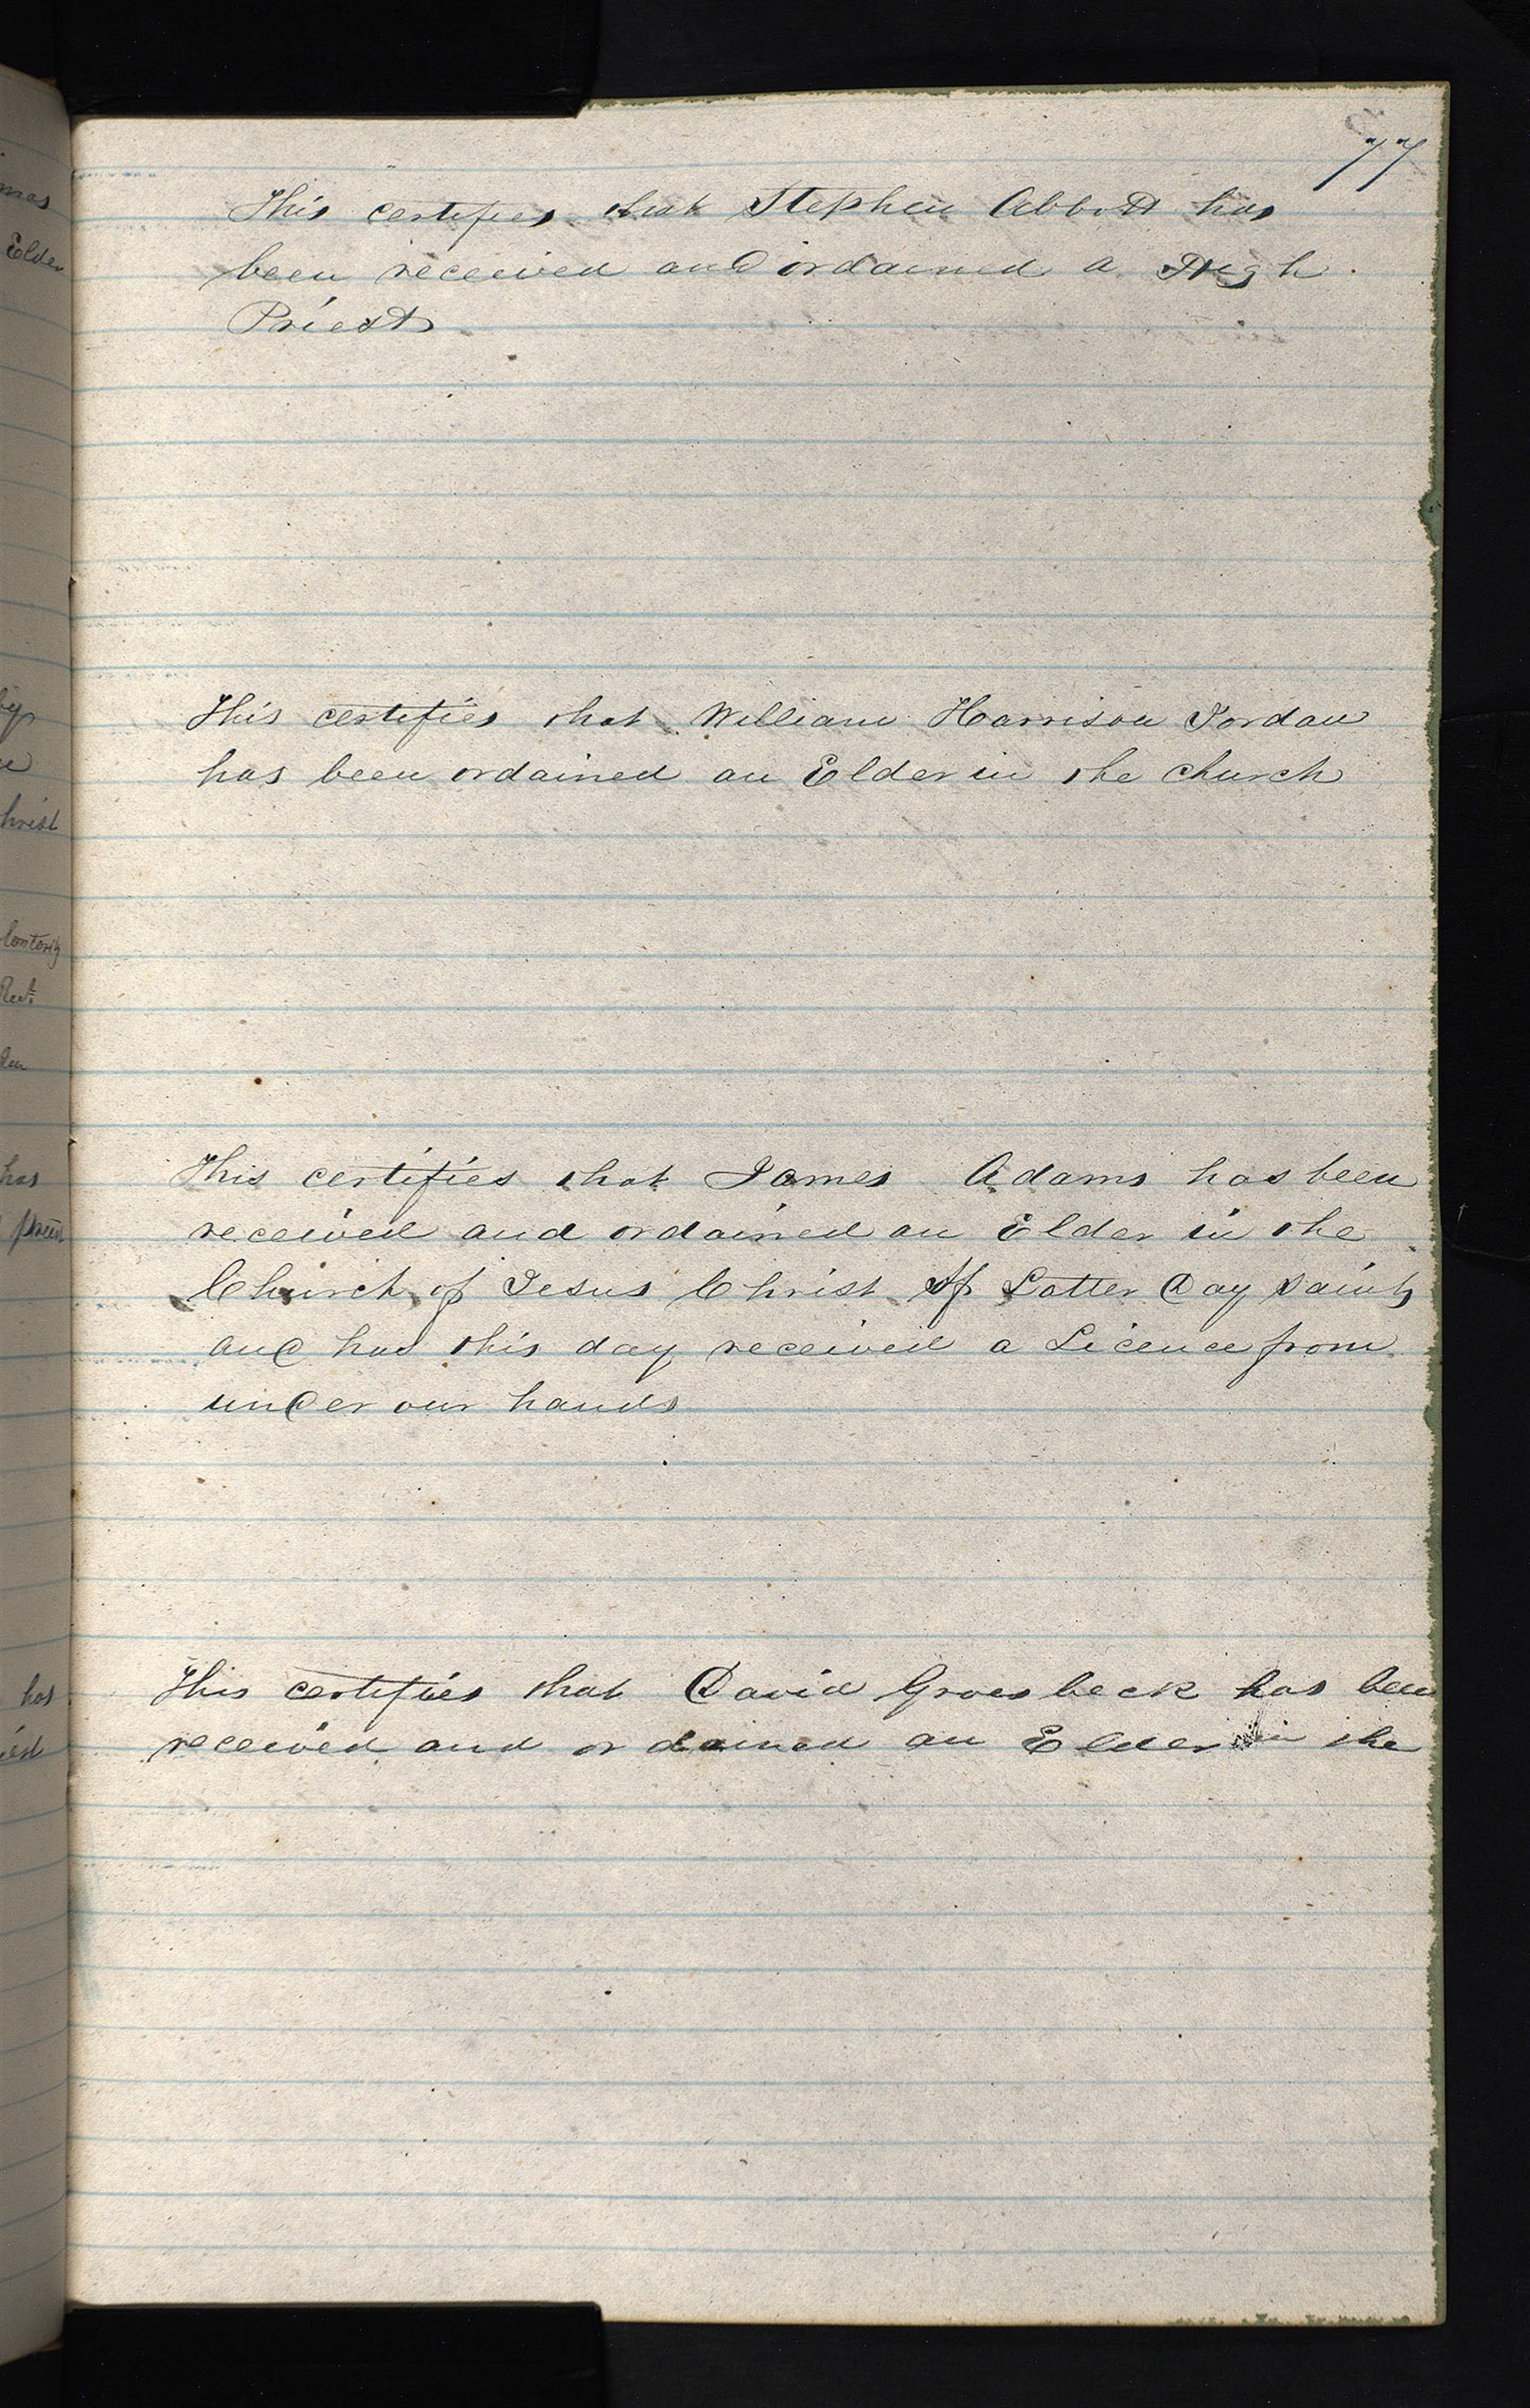 77
This certifies that Stephen Abbott has
been received and ordained a High
Priest
This certifies that William Harrison Jordan
has been ordained an Elder in the church
This certifies that James Adams has been
received and ordained an Elder in the
Church of Jesus Christ of Latter Day Saints
and has this day received a Licence from
under our hands
This certifies that David Groesbeck has been
received and ordained an Elder in the
mas
Elder
by
hrist
has
has